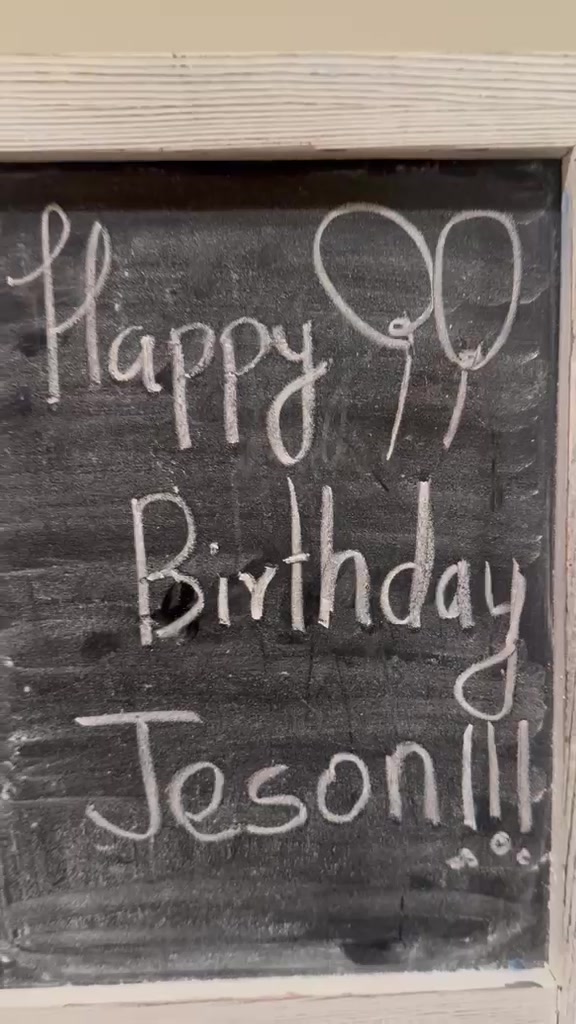 Happy
Birthday
Jeson!!!